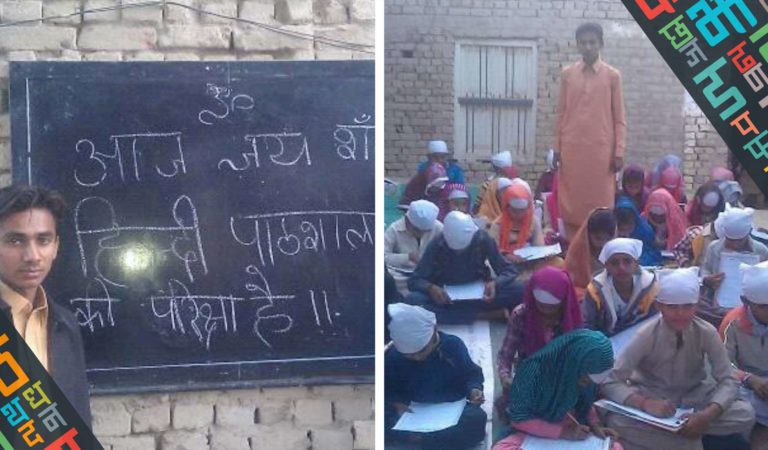 ॐ
आज जय
हिन्दी पाठशाल
की परिक्षा है ।।